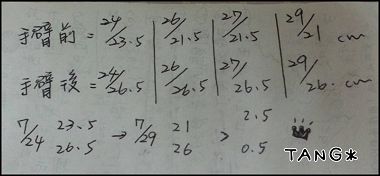 手臂前 = 24/23.5 | 26/21.5 | 27/21.5 | 29/21 cm
手臂後 = 24/26.5 | 26/26.5 | 27/26.5 | 29/26. cm
7/24 23.5 26.5 → 7/29 21 26 > 2.5 0.5
TANG*